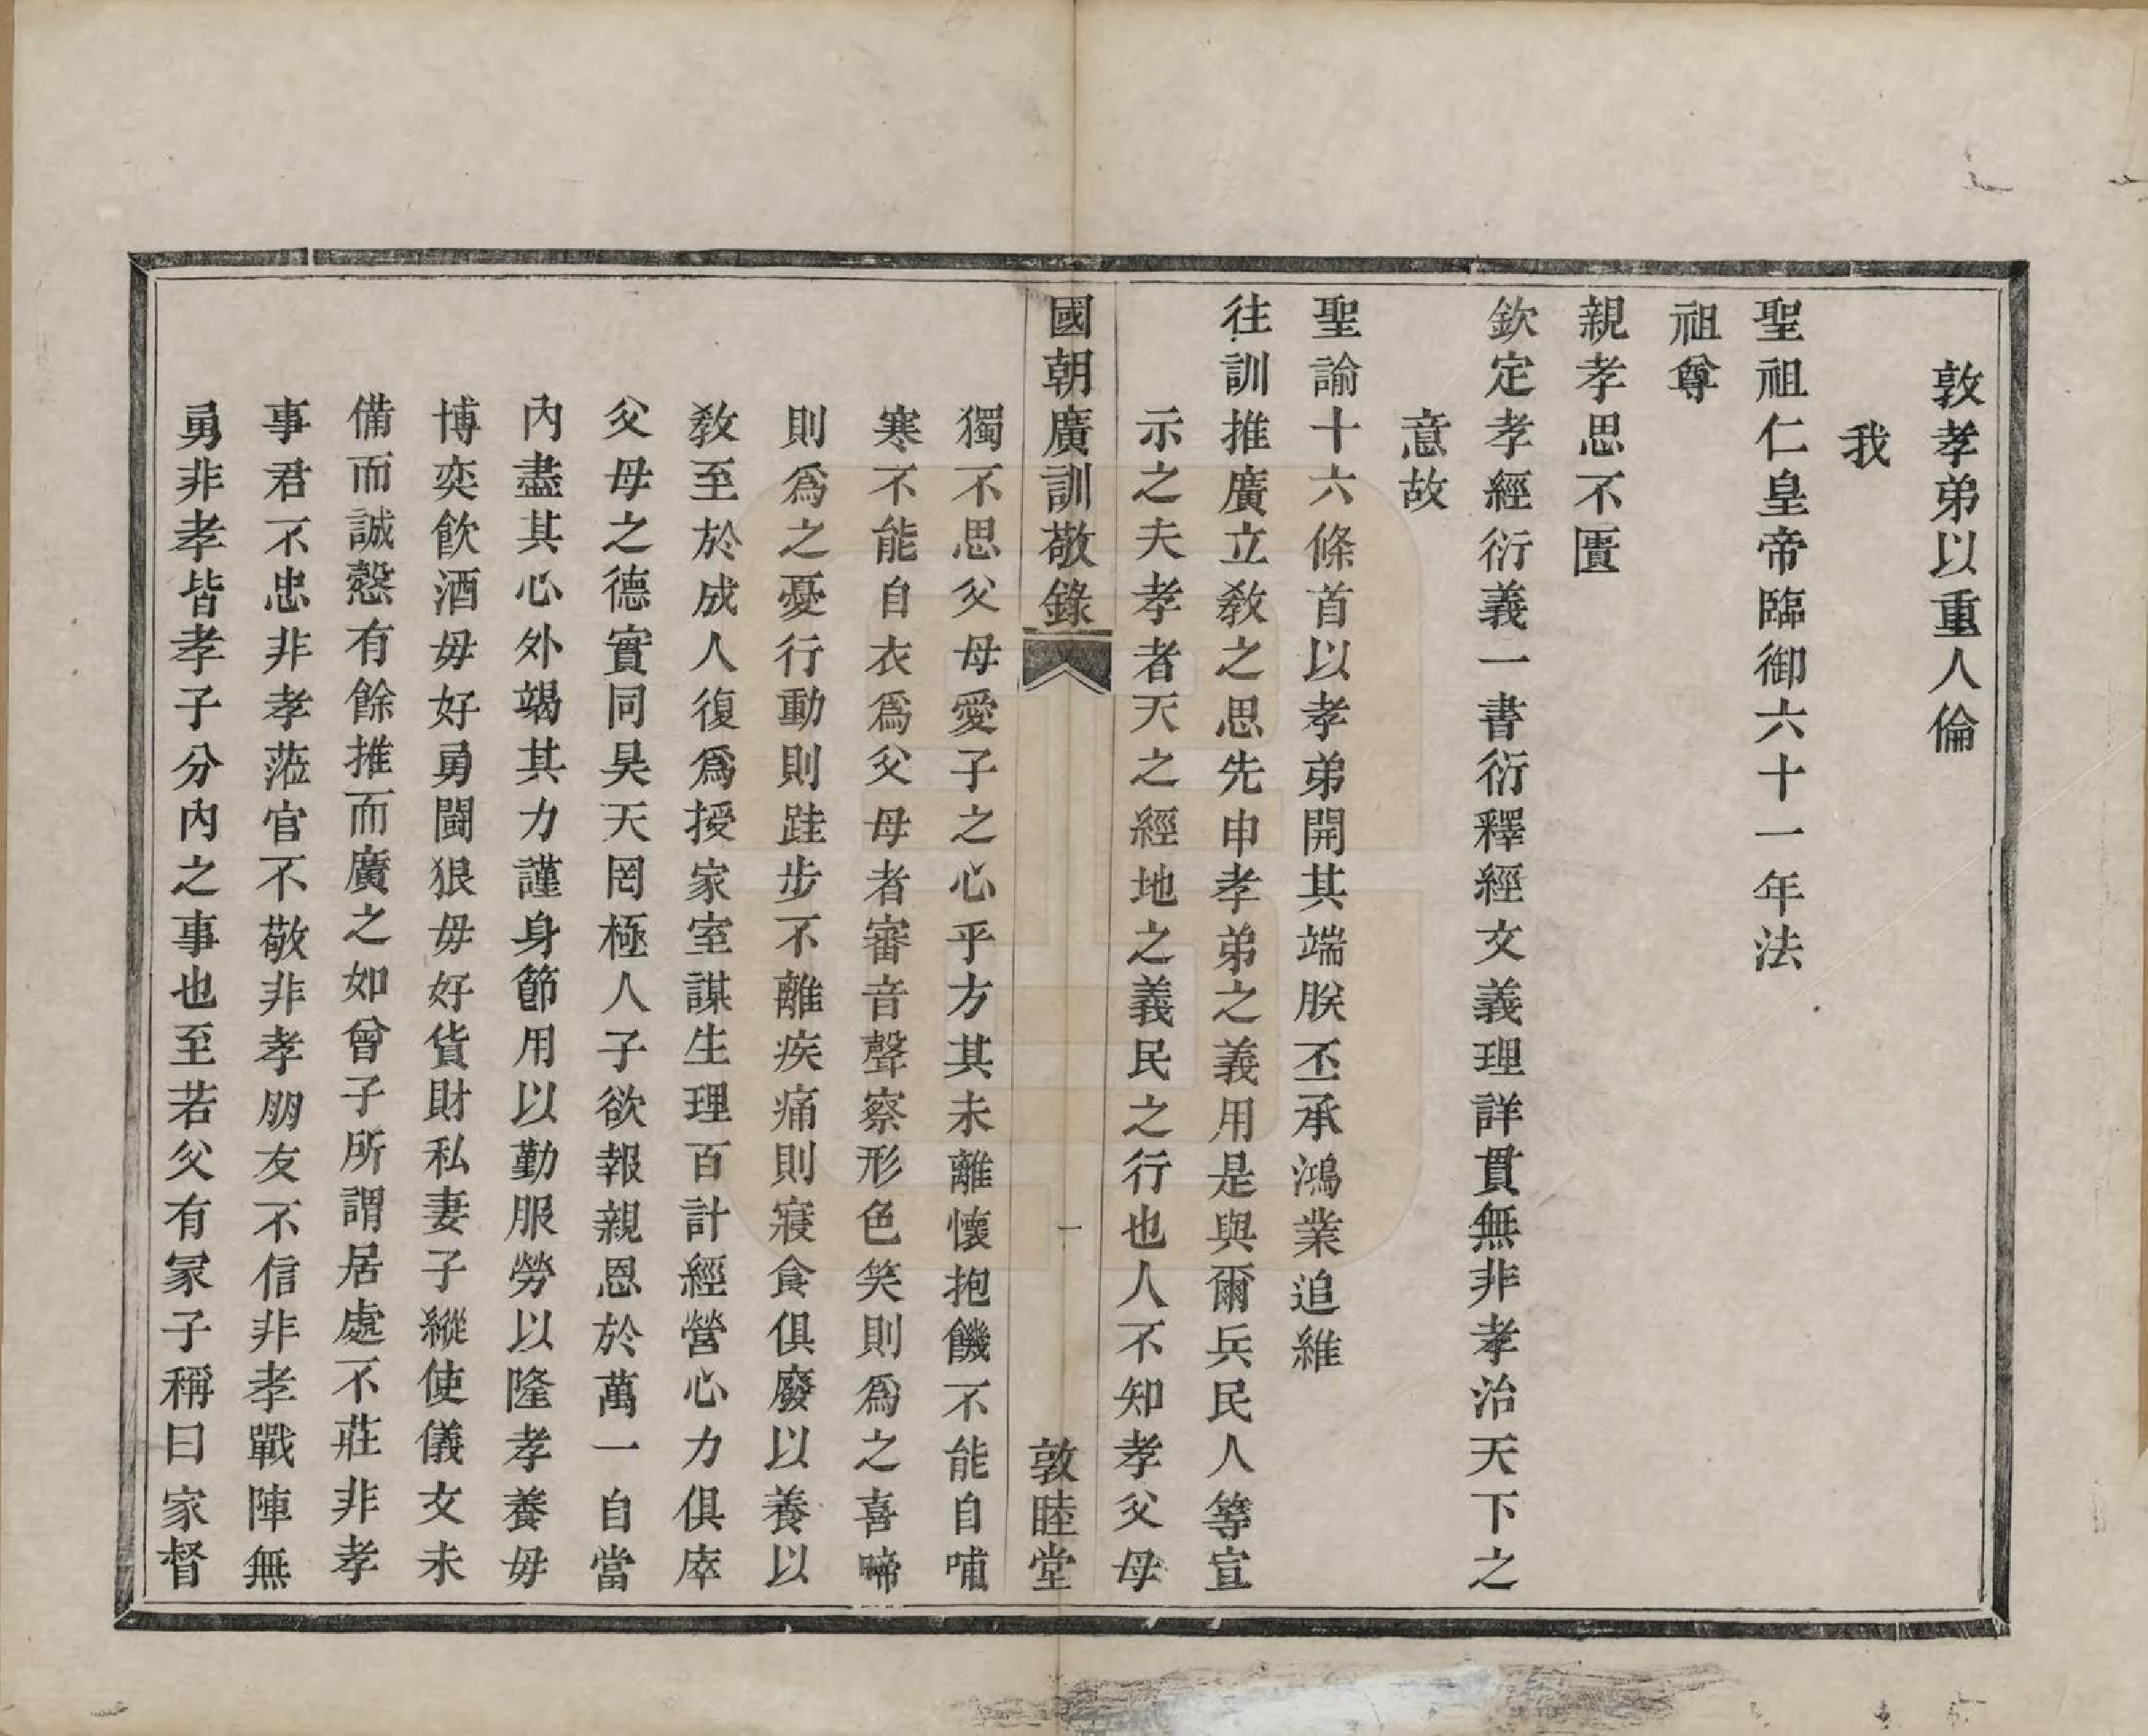 敦孝弟以重人倫
我
聖祖仁皇帝臨御六十一年法
祖尊
親孝思不匱
欽定孝經衍義一書衍釋經文義理詳貫無非孝治天下之
意故
聖諭十六條首以孝弟開其端朕丕承鴻業追維
往訓推廣立教之思先申孝弟之義用是與爾兵民人等宣
示之夫孝者天之經地之義民之行也人不知孝父母
國朝廣訓敬錄 一 敦睦堂
獨不思父母愛子之心乎方其未離懷抱饑不能自哺
寒不能自衣爲父母者審音聲察形色笑則爲之喜啼
則爲之憂行動則跬步不離疾痛則寢食俱廢以養以
教至於成人復爲授家室謀生理百計經營心力俱瘁
父母之德實同昊天罔極人子欲報親恩於萬一自當
內盡其心外竭其力謹身節用以勤服勞以隆孝養毋
博奕飲酒毋好勇鬬狠毋好貨財私妻子縱使儀文未
備而誠慤有餘推而廣之如曾子所謂居處不莊非孝
事君不忠非孝蒞官不敬非孝朋友不信非孝戰陣無
勇非孝皆孝子分內之事也至若父有冢子稱曰家督